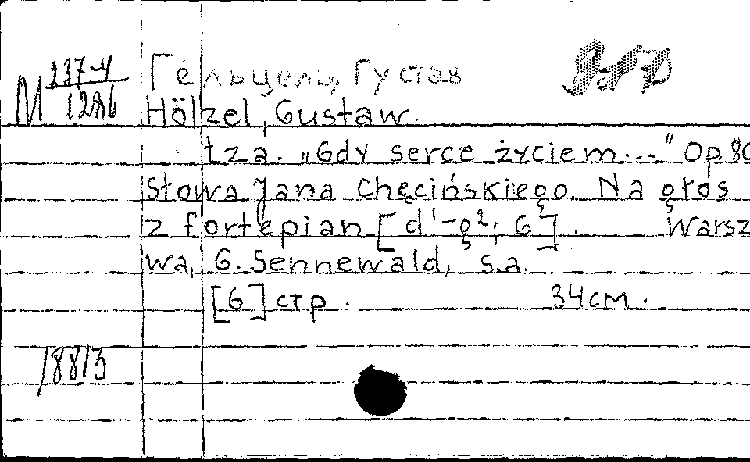 М 237-4
Гельцель, Густав
12А6
Hölzel, Gustaw.
Łza. „Gdy serce życiem..." Op 80
Słowa Jana Chęcińskiego. Na głos
z fortepian [d¹-g²; G]. Warsz
wa, G. Sennewald, s.a.
[6] стр. 34см.
1881З